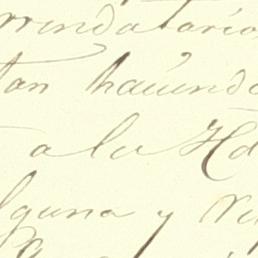 rrendatario
tan haciendo
a la Hd
lguna y